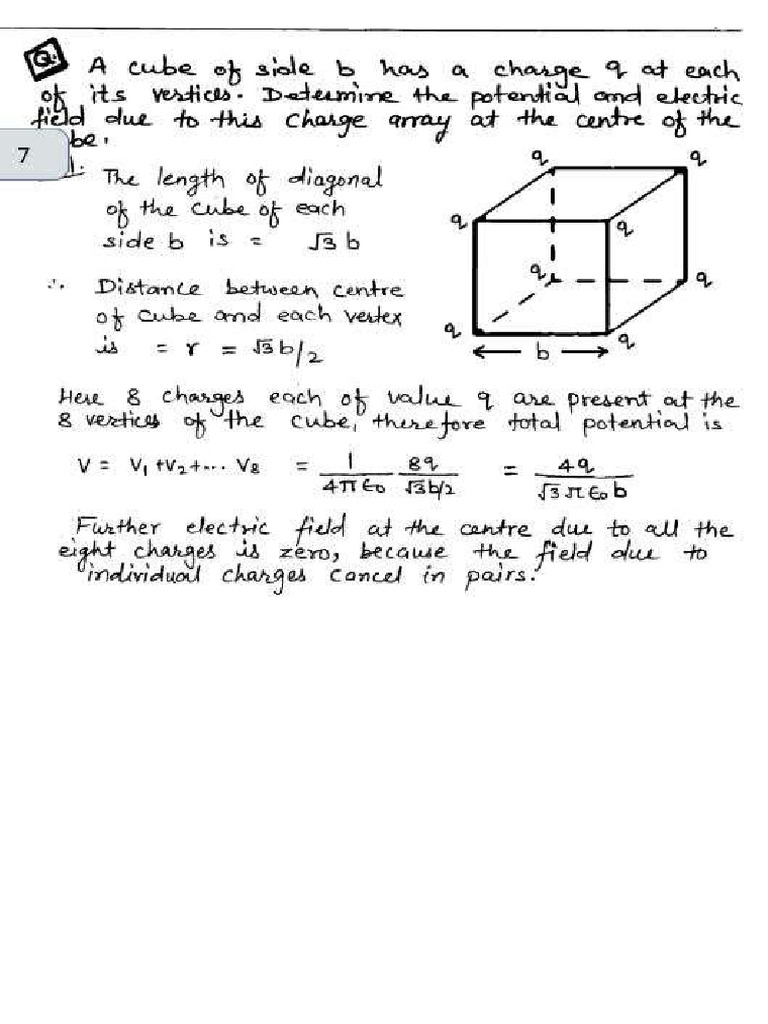 Q. A cube of side b has a charge q at each
of its vertices. Determine the potential and electric
field due to this charge array at the centre of the
be.
7
The length of diagonal
of the cube of each
side b is = √3 b
∴ Distance between centre
of cube and each vertex
is = r = √3b/2
q q
q q
q q
q q
b
Here 8 charges each of value q are present at the
8 vertices of the cube, therefore total potential is
V = V₁ +V₂ +... V₈ = 1/4π∈₀ 8q/√3b/2 = 4q/√3π∈₀b
Further electric field at the centre due to all the
eight charges is zero, because the field due to
individual charges cancel in pairs.